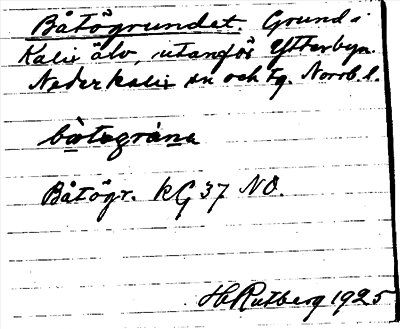 Båtögrundet. Grund i
Kalix älv, utanför Ytterbyn.
Nederkalix sn och tg. Norrb. l.
båtögrunn
Båtögr. KG 37 NO.
H Rutberg 1925